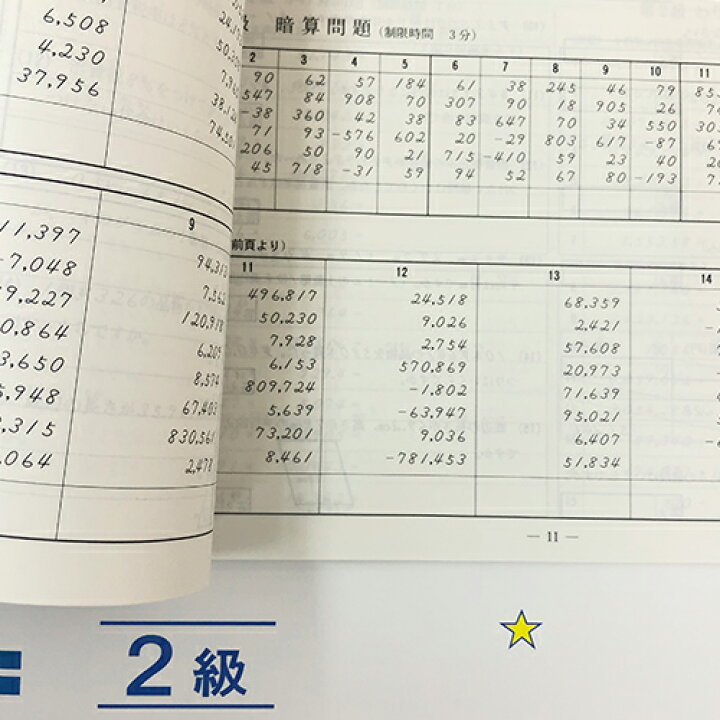 6,508
4,230
37,956
11,397
-7,048
9,227
0,864
3,650
5,948
,315
,064
9
94,313
7,562
120,918
6,209
8,574
67,403
830,561
2,478
暗算問題 (制限時間 3分)
2 3 4 5 6 7 8 9 10 11
90 62 57 184 61 38 245 46 79
547 84 908 70 307 90 18 905 26
-38 360 42 38 83 647 70 34 550
71 93 -576 602 20 -29 803 617 -87
206 50 90 21 715 -410 59 23 40
45 718 -31 59 94 52 67 80 -193
前頁より)
11 12 13 14
496,817 24,518 68,359
50,230 9,026 2,421
7,928 2,754 57,608
6,153 570,869 20,973
809,724 -1,802 71,639
5,639 -63,947 95,021
73,201 9,036 6,407
8,461 -781,453 51,834
— 11 —
2級